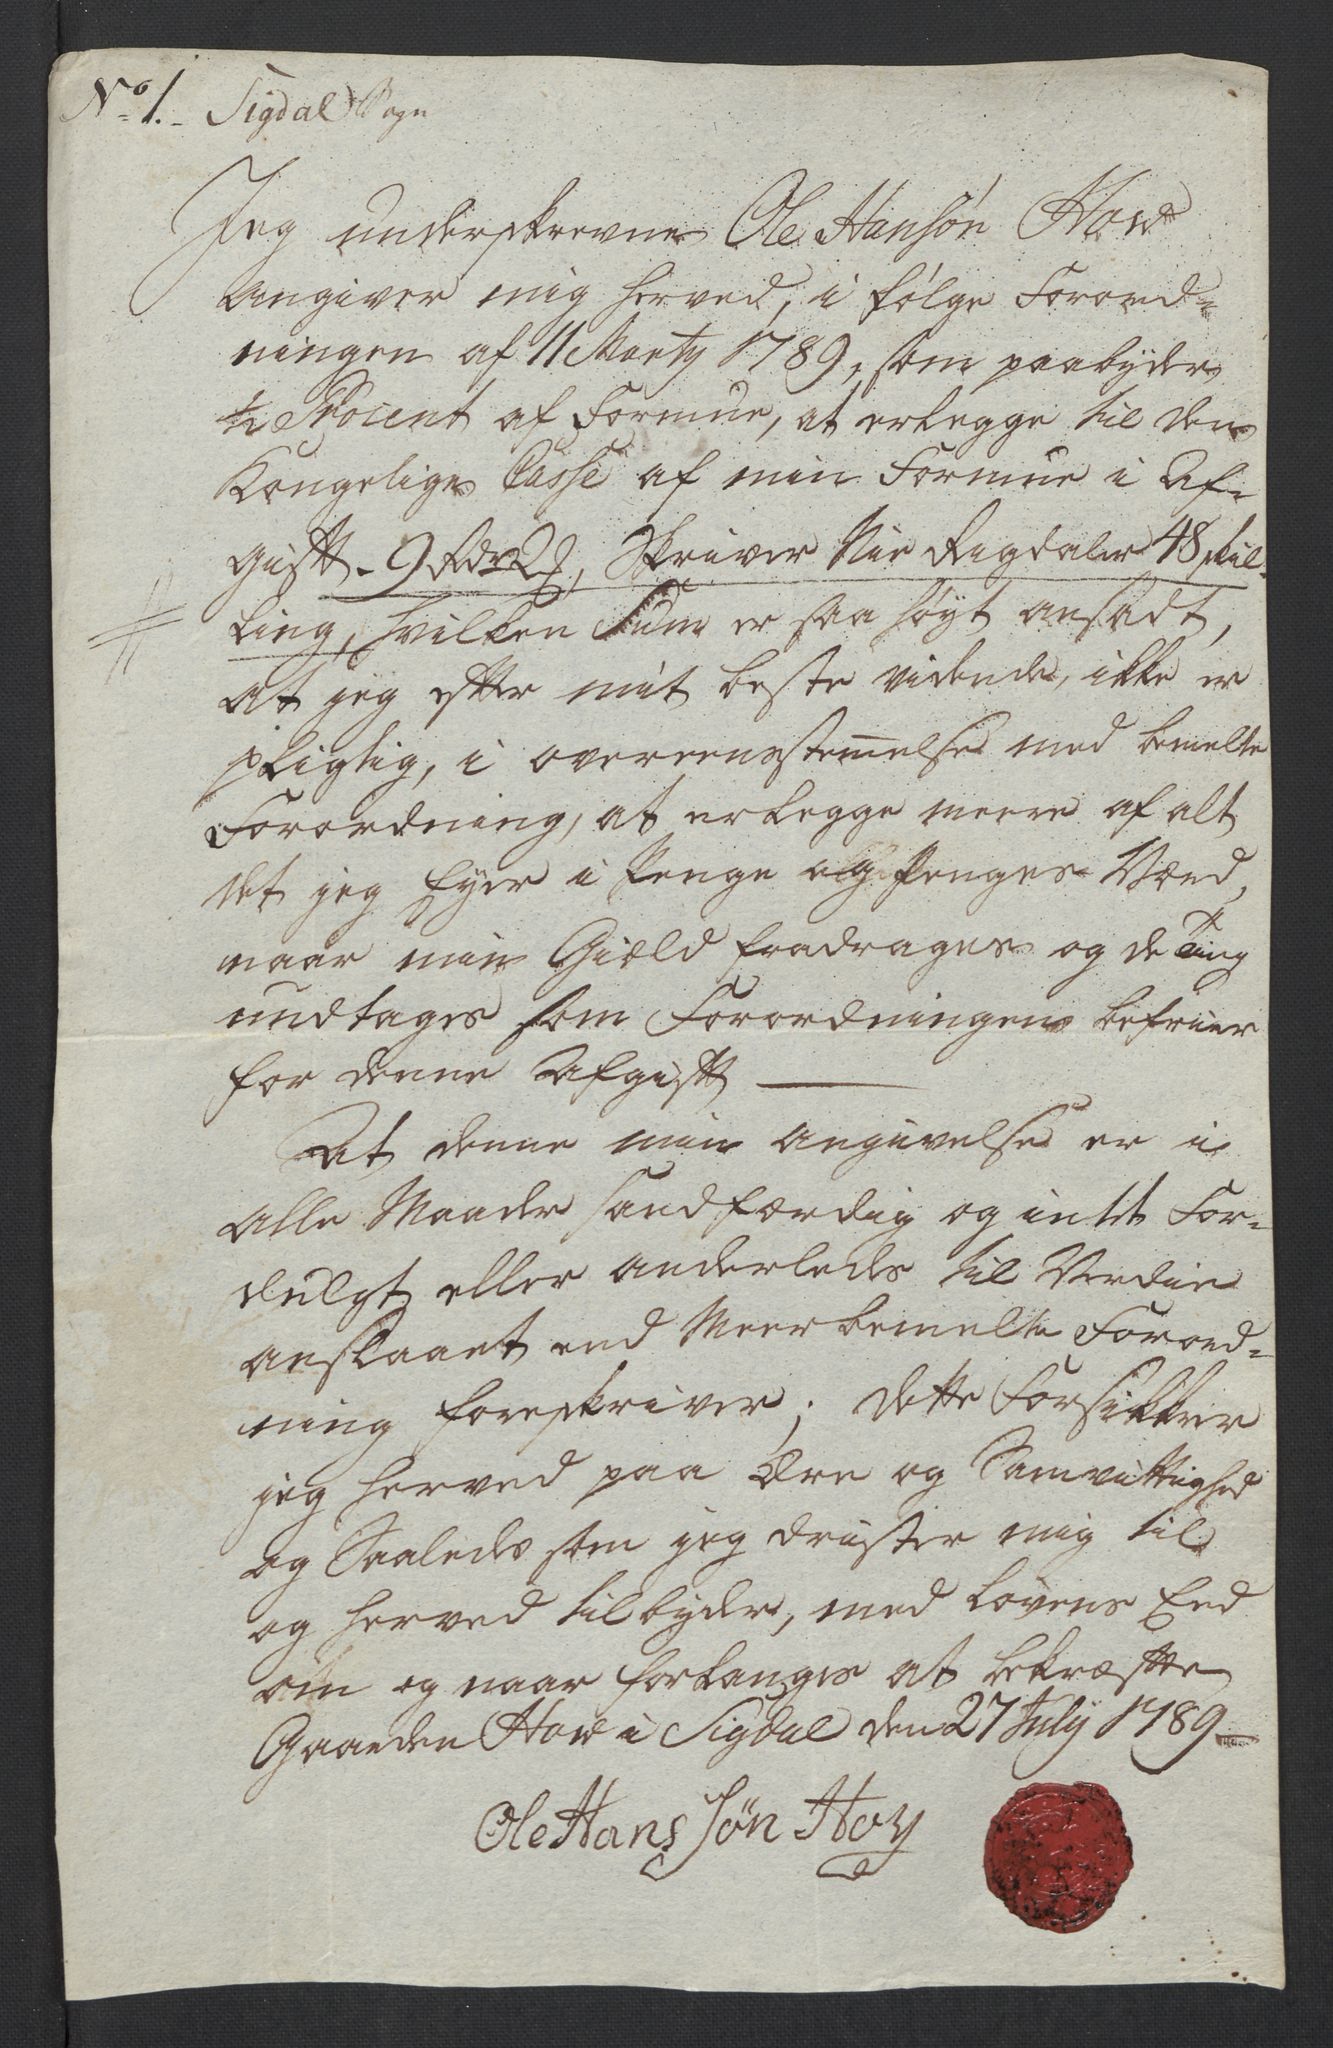 No 1. Sigdal Sogn
Jeg underskrevne Ole Hansøn How
angiver mig herved, i følge Forord-
ningen af 11 Marty 1789, som paabyder
1/2 Procent af Formue, at erlegge til den
Kongelige Casse af min Formue i Af-
gift - 9 Rdr 2 , Skriver Nie Rigdaler 48 skil-
ling, hvilken Sum er saa høyt ansadt,
at jeg efter mit beste vidende, ikke er
pligtig, i overeensstemelse med bemelte
Forordning, at erlegge meere af alt
det jeg Eyer i Penge og Penges Værd,
naar min Giæld fradrages og de Ting
undtages som Forordningen befrier
for denne Afgift
At denne min angivelse er i
alle Maader sandfærdig og intet For-
dulgt eller anderleds til Verdie
anslaaet end Meerbemelte Forord-
ning foreskriver; dette Forsikkrer
jeg herved paa Ære og Samvittighed
og Saaleds som jeg drister mig til
og herved tilbyder, med Lovens Eed
om og naar forlanges at bekræfte
Gaarden How i Sigdal den 27 July 1789
Ole Hans søn Hov